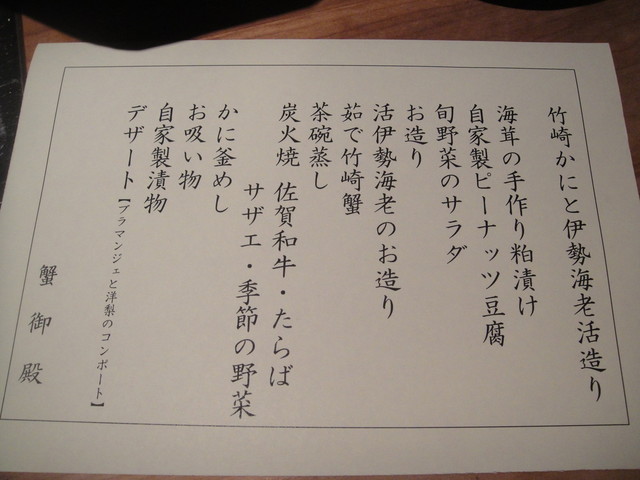 竹崎かにと伊勢海老活造り
海茸の手作り粕漬け
自家製ピーナッツ豆腐
旬野菜のサラダ
お造り
活伊勢海老のお造り
茹で竹崎蟹
茶碗蒸し
炭火焼 佐賀和牛・たらば
サザエ・季節の野菜
かに釜めし
お吸い物
自家製漬物
デザート【ブラマンジェと洋梨のコンポート】
蟹御殿